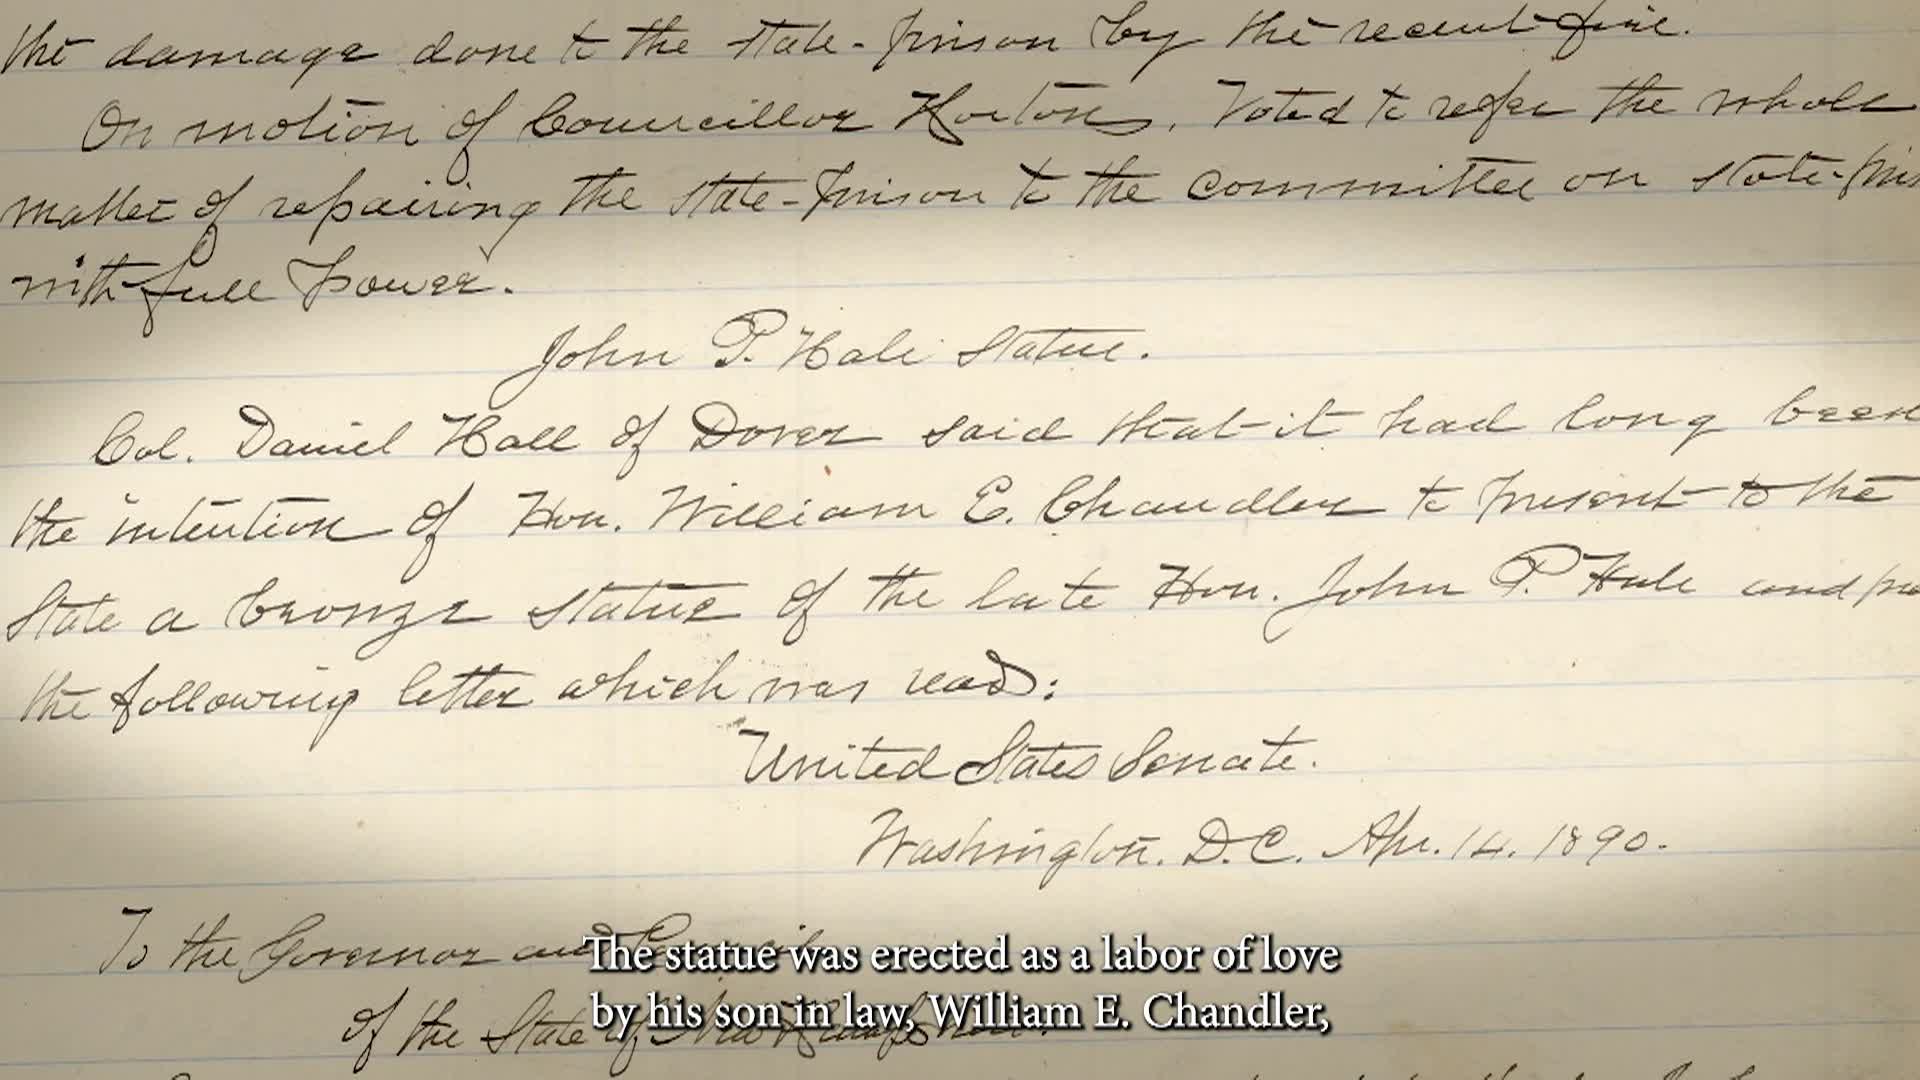 the damage done to the state-prison by the recent fire.
On motion of Councillor Horton, Voted to refer the whole
matter of repairing the state-prison to the committee on state-pris
with full power.
John P. Hale Statue.
Col. Daniel Hall of Dover said that it had long been
the intention of Hon. William E. Chandler to present to the
State a bronze statue of the late Hon. John P. Hale and pre
the following letter which was read:
United States Senate.
Washington, D.C. Apr. 14. 1890.
To the Governor and Council
of the State of New Hampshire.
The statue was erected as a labor of love
by his son in law, William E. Chandler,